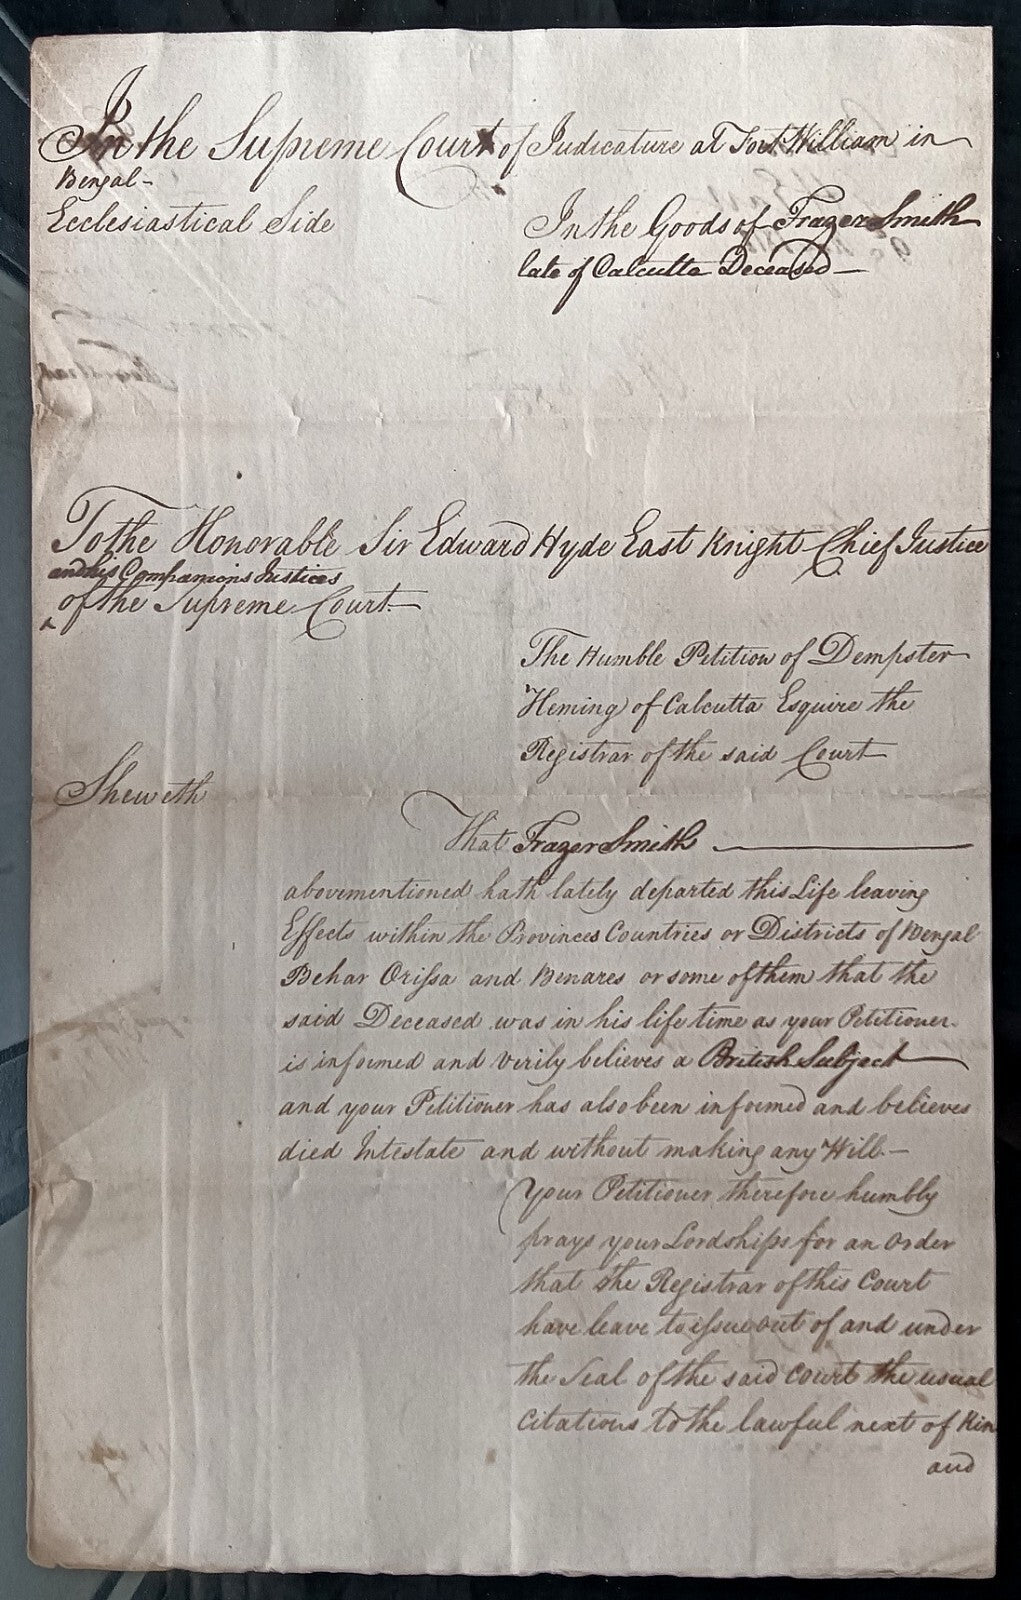 In the Supreme Court of Judicature at Fort William in
Bengal -
Ecclesiastical Side
In the Goods of Frazer Smith
late of Calcutta Deceased —
To the Honorable Sir Edward Hyde East Knight Chief Justice
and his Companions Justices
of the Supreme Court —
The Humble Petition of Dempster
Heming of Calcutta Esquire the
Registrar of the said Court
Sheweth
That Frazer Smith —
abovementioned hath lately departed this Life leaving
Effects within the Provinces Countries or Districts of Bengal
Behar Orissa and Benares or some of them that the
said Deceased was in his life time as your Petitioner
is informed and verily believes a British Subject —
and your Petitioner has also been informed and believes
died Intestate and without making any Will —
Your Petitioner therefore humbly
prays your Lordships for an order
that the Registrar of this Court
have leave to issue out of and under
the Seal of the said Court the usual
Citations to the lawful next of Kin
and